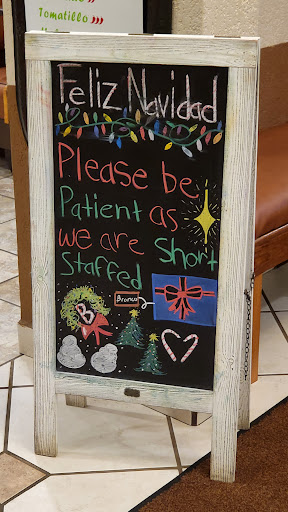 Tomatillo >>>
Feliz Navidad
Please be
Patient as
we are Short
Staffed
Bronco
B